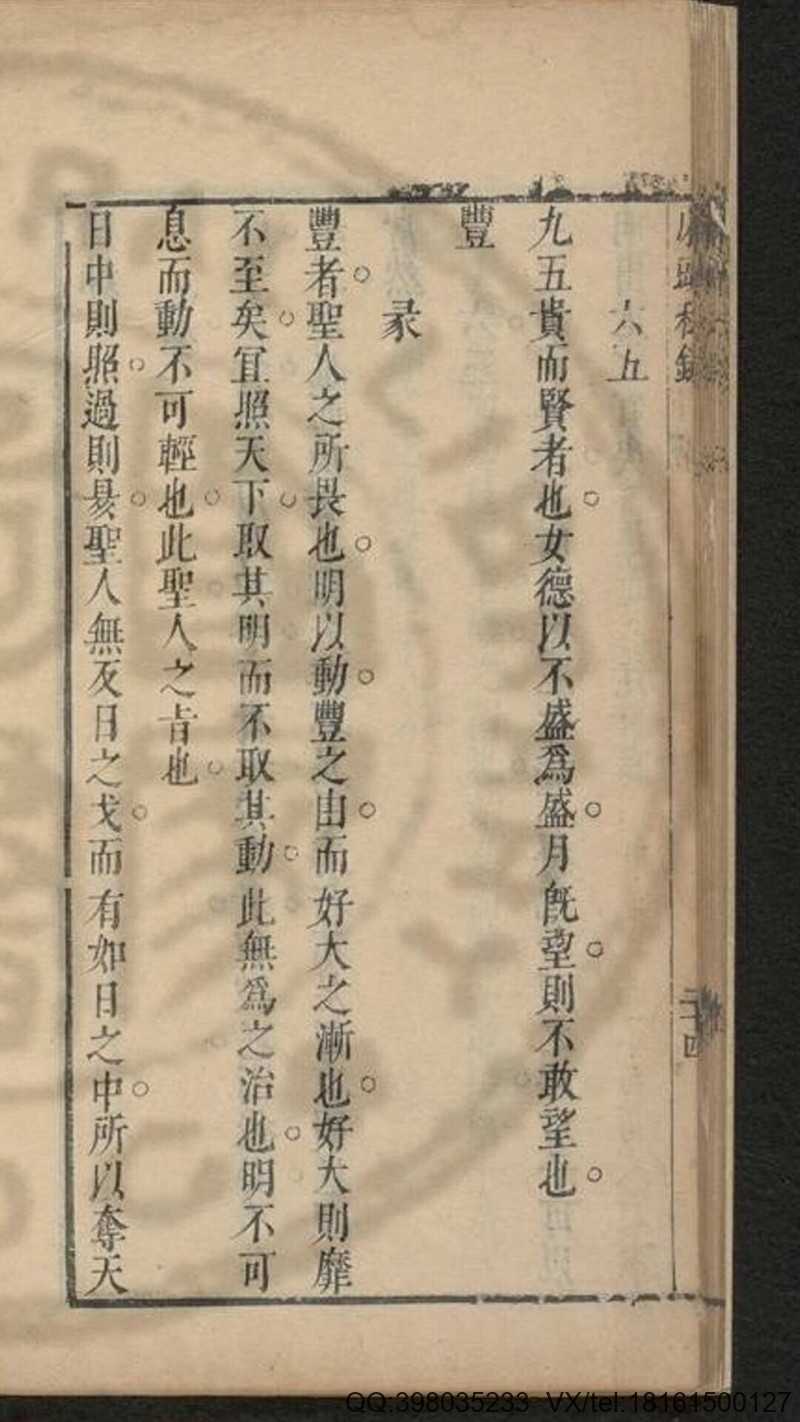 六五
九五貴而賢者也女德以不盛爲盛月旣望則不敢望也
豐
彖
豐者聖人之所畏也明以動豐之由而好大之漸也好大則靡
不至矣冝照天下取其明而不取其動此無爲之治也明不可
息而動不可輕也此聖人之㫖也
日中則照過則昃聖人無反日之戈而有如日之中所以奪天
二十四
QQ:398035233 VX/tel:18161500127